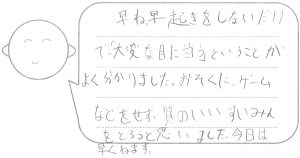 早ね早起きをしないだけ
で大変な目に当うということが
よく分かりました。おそくに、ゲーム
などをせず、質のいいすいみん
をとろうと思いました。今日は
早くねます。